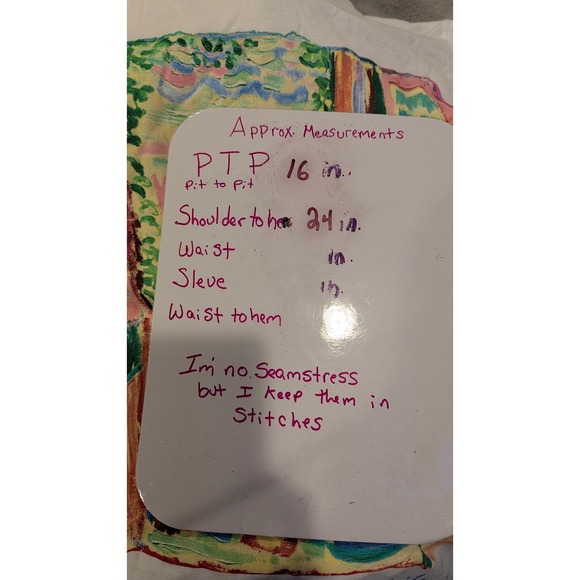 Approx. Measurements
PTP 16 in.
Pit to Pit
Shoulder to hem 24 in.
Waist in.
Sleve in.
Waist to hem
I'm no Seamstress
but I keep them in
Stitches